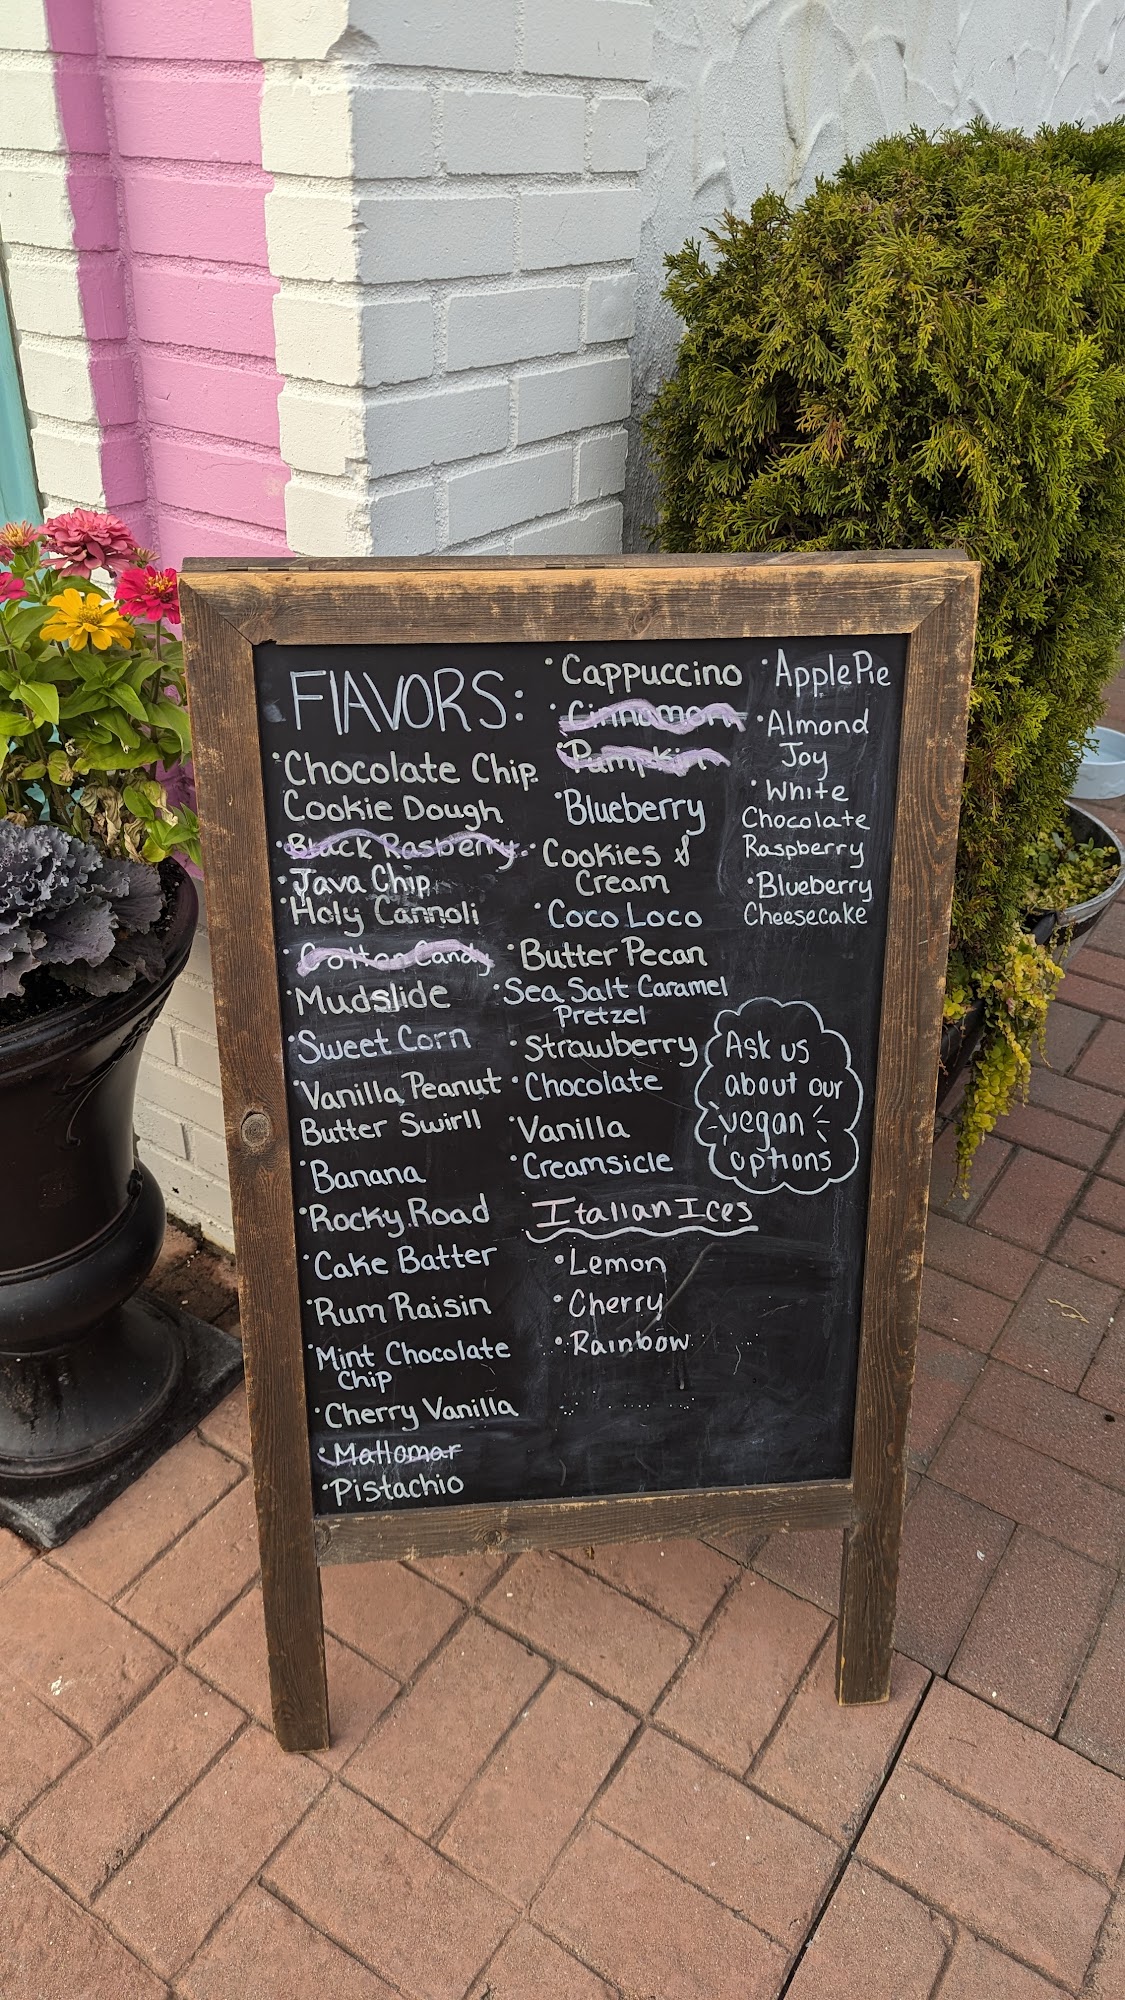 FlAVORS:
• Chocolate Chip
Cookie Dough
• Black Rasberry
• Java Chip
• Holy Cannoli
• Cotton Candy
• Mudslide
• Sweet Corn
• Vanilla Peanut
Butter Swirll
• Banana
• Rocky Road
• Cake Batter
• Rum Raisin
• Mint Chocolate
Chip
• Cherry Vanilla
• Mallomar
• Pistachio
• Cappuccino
• Cinnamon
• Pumpkin
• Blueberry
• Cookies &
Cream
• Coco Loco
• Butter Pecan
• Sea Salt Caramel
Pretzel
• Strawberry
• Chocolate
• Vanilla
• Creamsicle
Italian Ices
• Lemon
• Cherry
• Rainbow
• Apple Pie
• Almond
Joy
• White
Chocolate
Raspberry
• Blueberry
Cheesecake
Ask us
about our
vegan
options